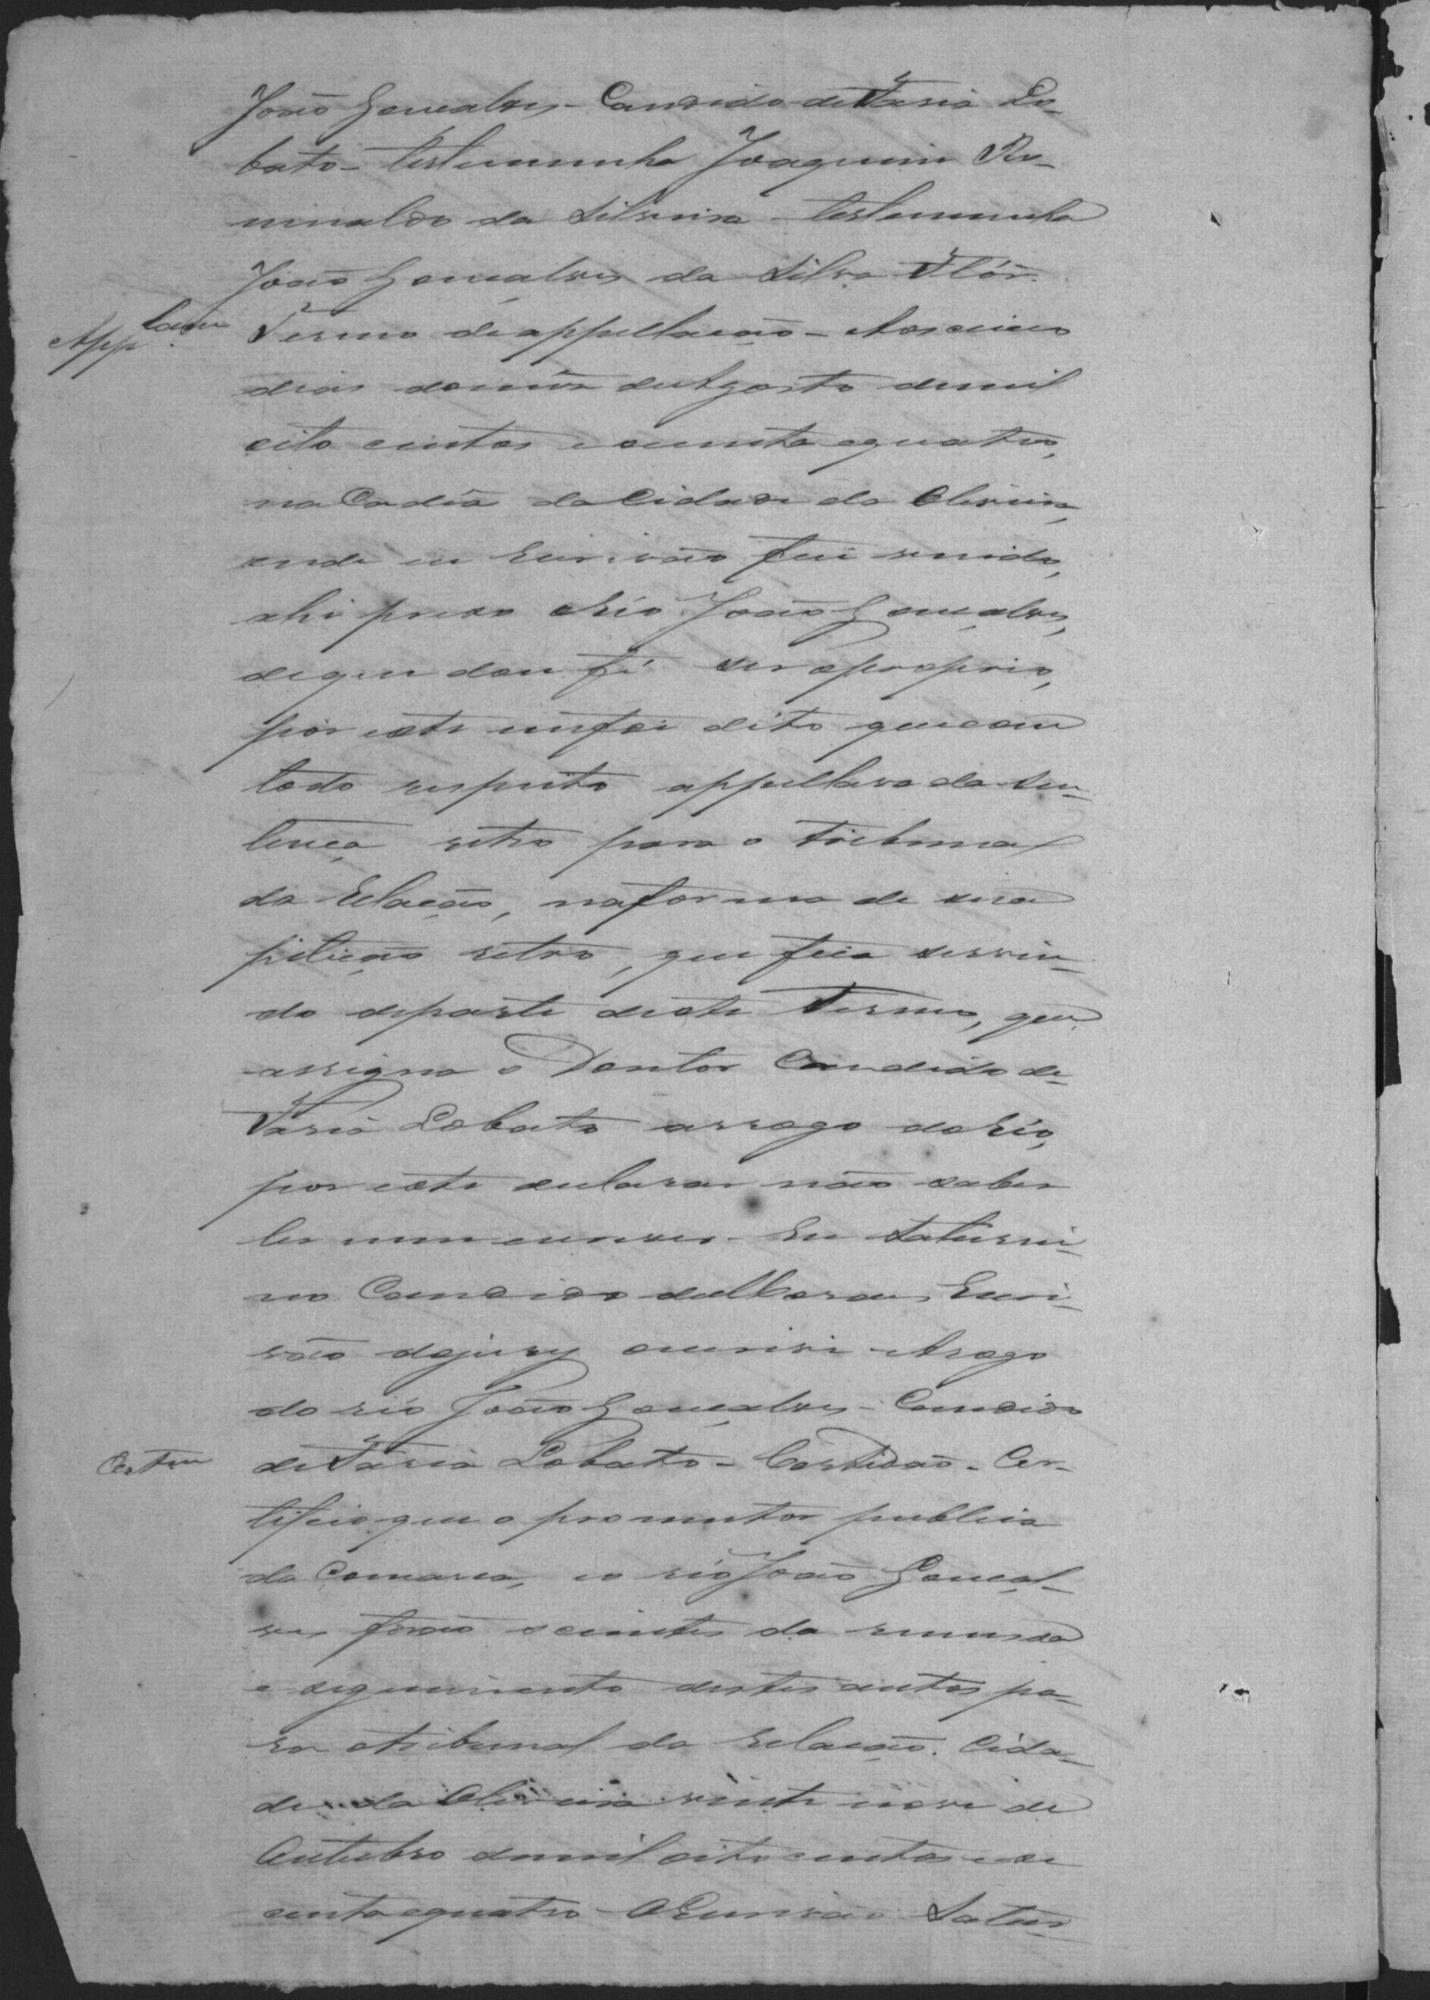 João Gonçalves - Candido de Faria Lo-
bato - testemunha Joaquim Ro-
mualdo da Silveira - testemunha
João Gonçalves da Silva Flôr.
App.lam Termo de appellação - Aos cinco
dias do mês de Agosto de mil
oito centos e oitenta e quatro,
na Cadêa da Cidade da Oliveira,
onde eu Escrivão fui vindo,
ahi preso o Réo João Gonçalves,
de que dou fé ser o proprio,
por este me foi dito que com
todo respeito appellava da sen-
tença retro para o Tribunal
da Relação, na forma de sua
petição retro, que fica servin-
do de parte deste Termo, que
assigna o Doutor Candido de
Faria Lobato a rogo do Réo,
por este declarar não saber
ler nem escrever. Eu Saturni-
no Candido de Moraes, Escri-
vão do jury escrevi - A rogo
do réo João Gonçalves - Candido
Certam de Faria Lobato - Certidão - Cer-
tifico que o promotor publico
da Comarca, e o réo João Gonçal-
ves forão scientes da remessa
e seguimento destes autos pa-
ra o tribunal da relação. Cida-
de da Oliveira vinte nove de
Outubro de mil oito centos e oi-
tenta e quatro - O Escrivão Satur-